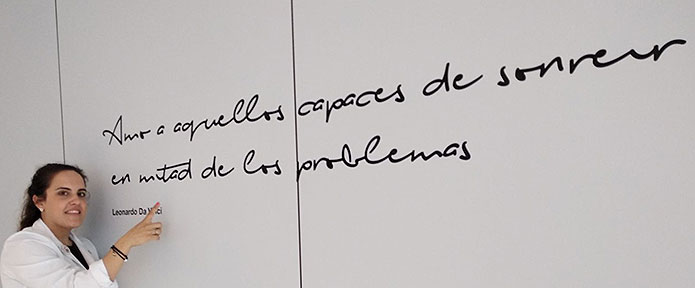 Amo a aquellos capaces de sonreir
en mitad de los problemas
Leonardo Da Vinci